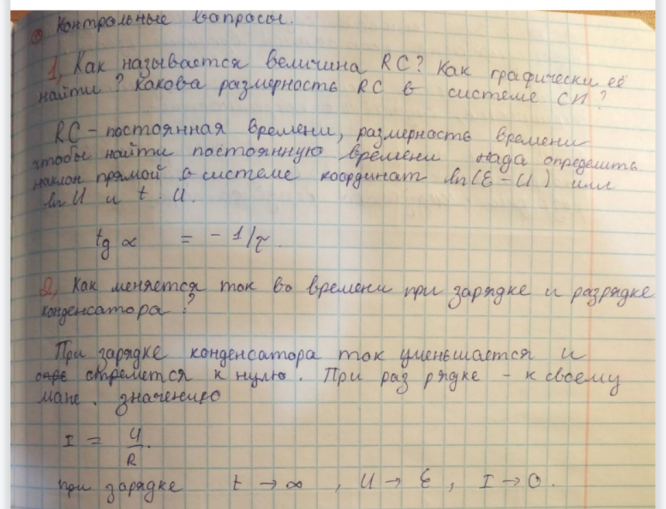 Контрольные вопросы.
1, Как называется величина RC? Как графически её
найти? Какова размерность RC в системе СИ?
RC - постоянная времени, размерность времени
чтобы найти постоянную времени нада определить
наклон прямой в системе координат ln(ℰ - U) или
ln U и t. U.
tg α = - 1/τ.
2, Как меняется ток во времени при зарядке и разрядке
конденсатора?
При зарядке конденсатора ток уменьшается и
стремется к нулю. При раз рядке - к своему
макс. значению
I = U/R.
при зарядке t → ∞, U → ℰ, I → 0.